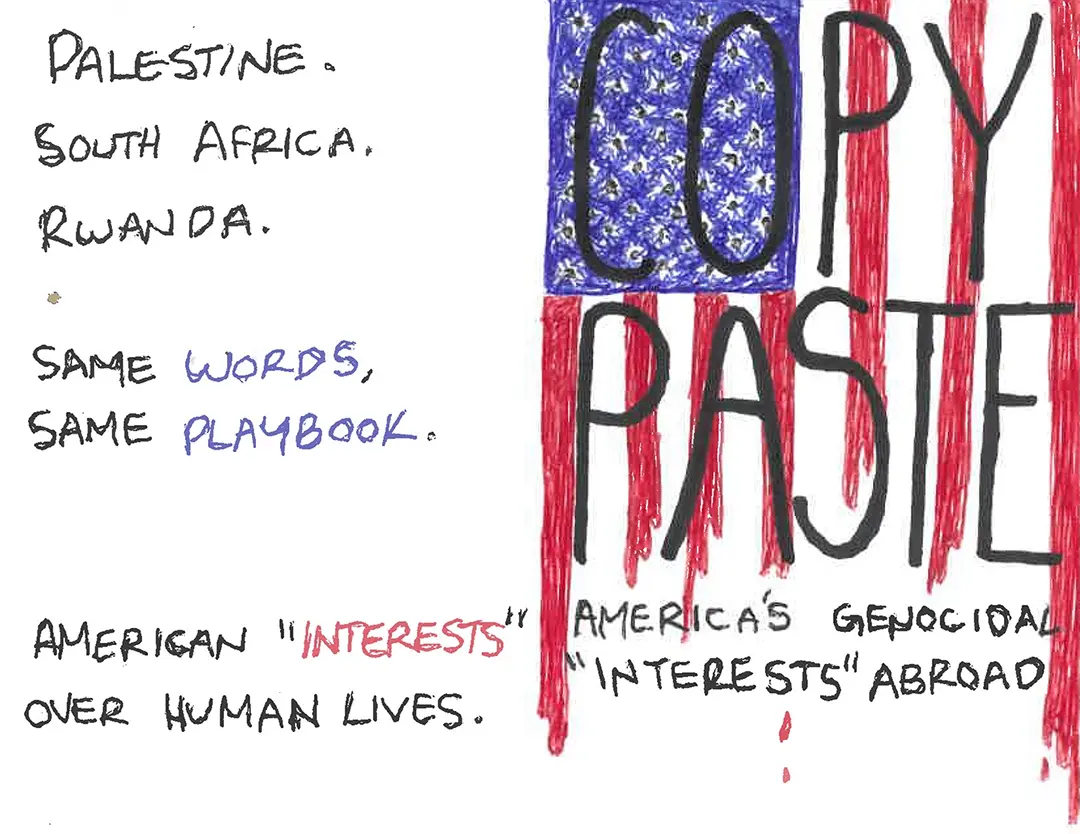 PALESTINE.
SOUTH AFRICA.
RWANDA.
SAME WORDS,
SAME PLAYBOOK.
AMERICAN "INTERESTS"
OVER HUMAN LIVES.
COPY
PASTE
AMERICA'S GENOCIDAL
"INTERESTS" ABROAD